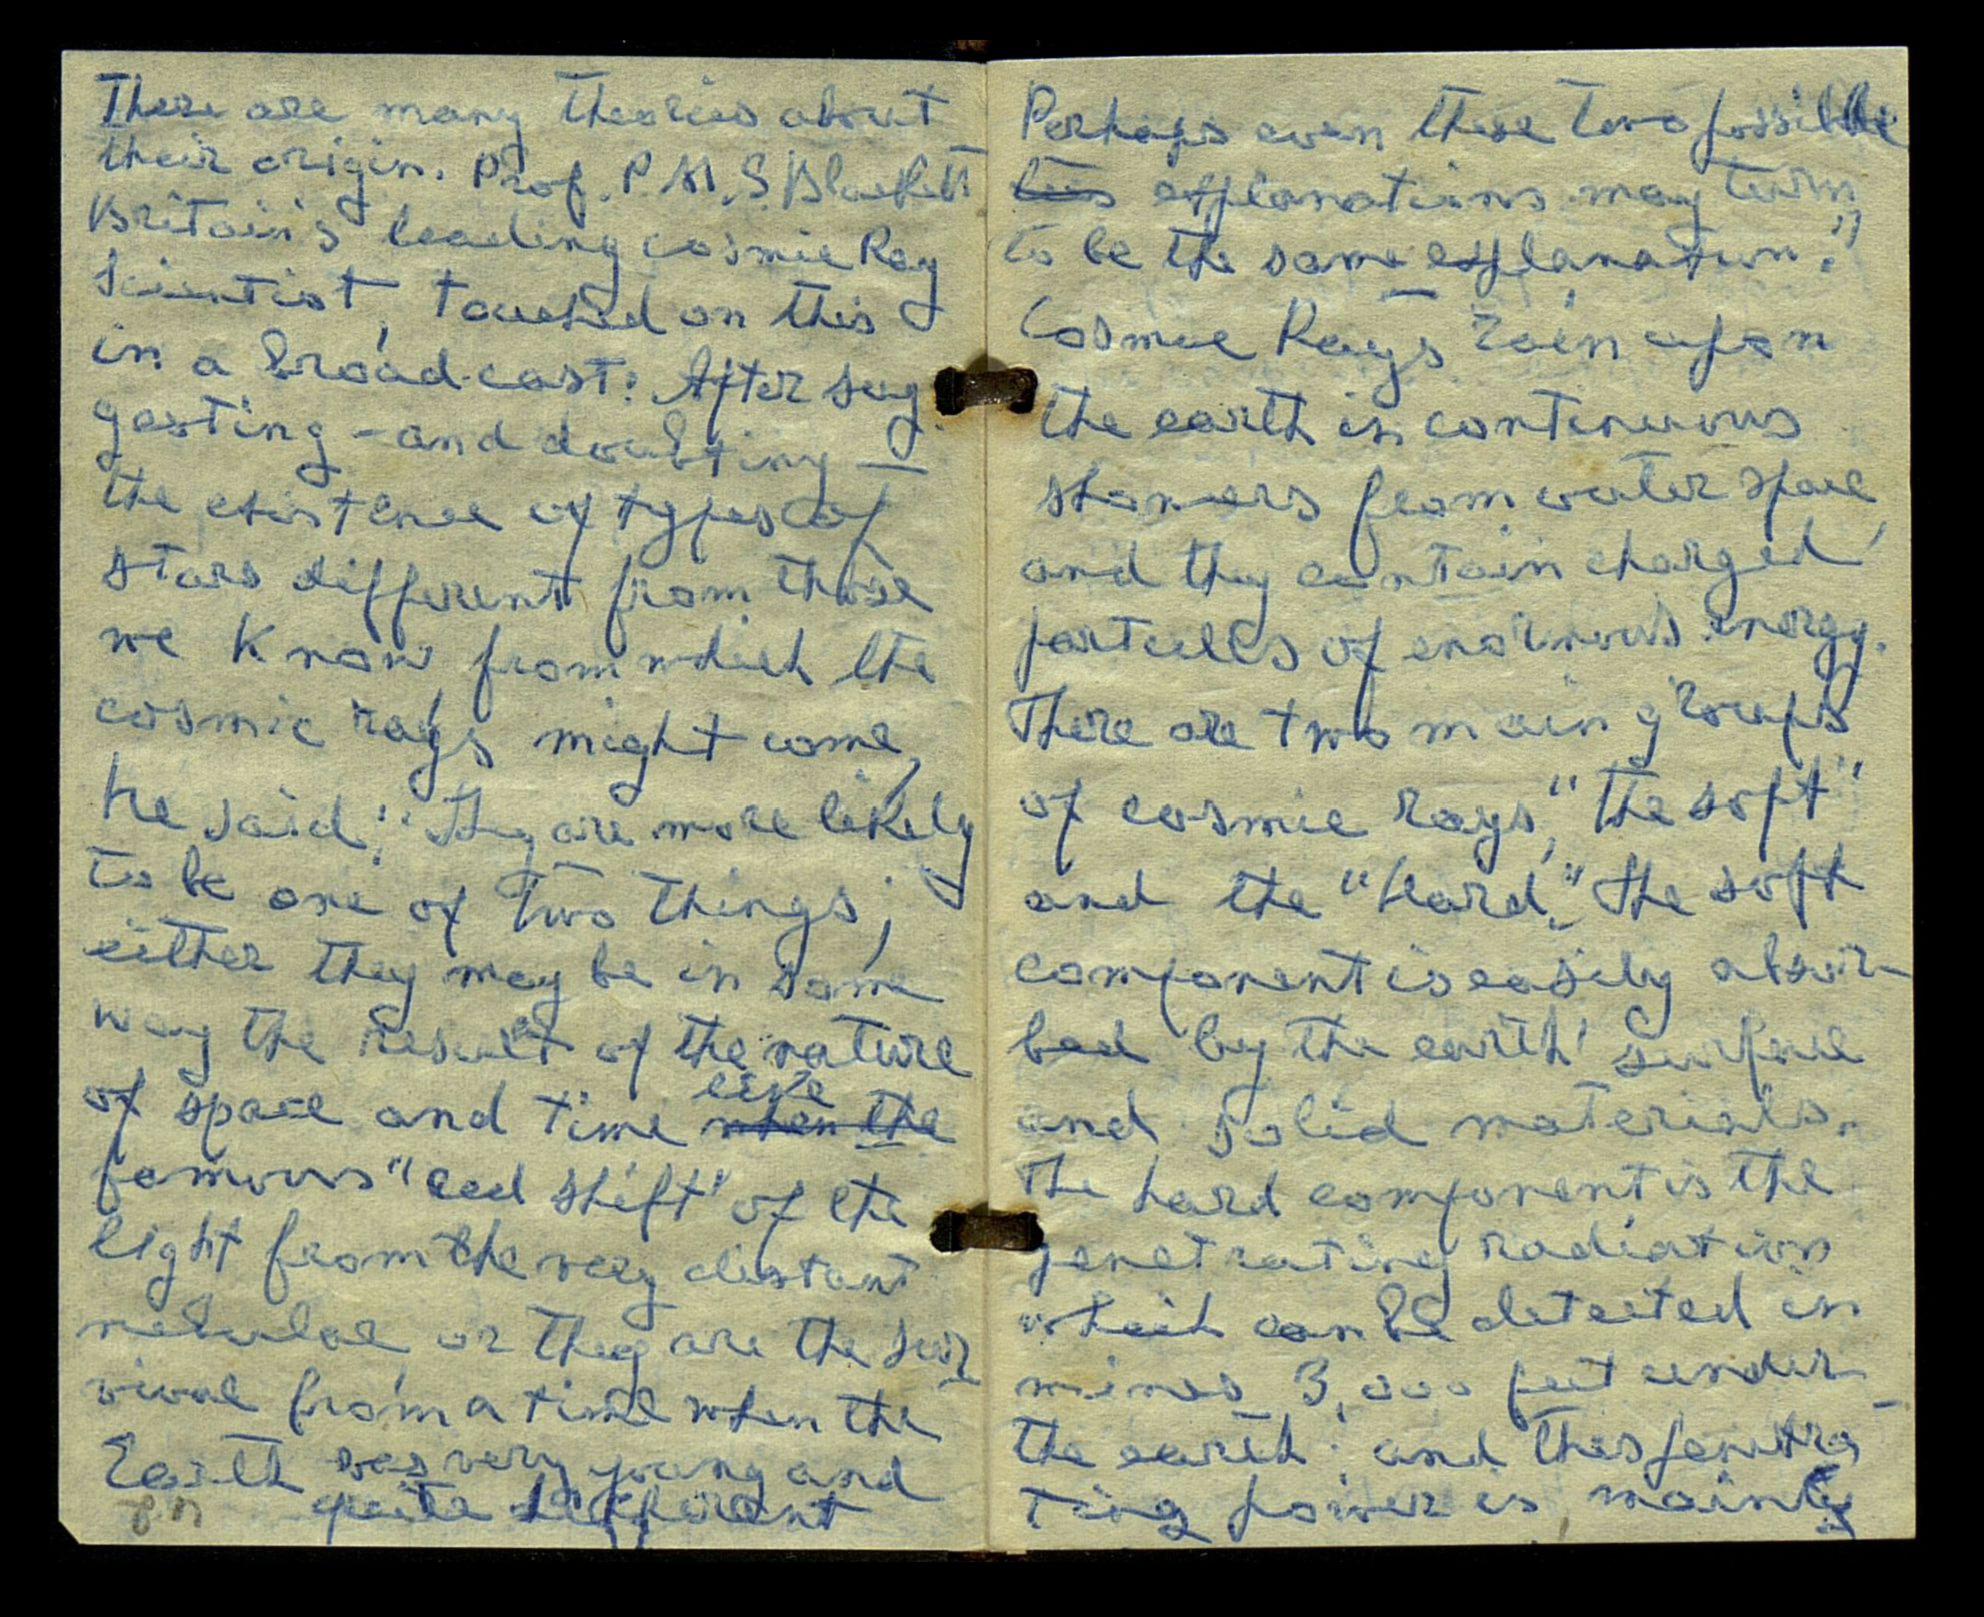 There are many theories about
their origin. Prof. P.M.S. Blackett
Britain's leading cosmic Ray
Scientist, touched on this
in a broad-cast: After sug-
gesting - and doubting —
the existence of types of
stars different from those
we know from which the
cosmic rays might come,
he said: "They are more likely
to be one of two things;
either they may be in some
way the result of the nature
of space and time like when the
famous "red shift" of the
light from the very distant
nebulae, or they are the sur-
vival from a time when the
Earth was very young and
quite different
Perhaps even these two possible
ties explanations may turn
to be the same explanation."
Cosmic Rays rain upon
the earth in continuous
showers from outer space,
and they contain charged
particles of enormous energy.
There are two main groups
of cosmic rays, "the soft"
and the "Hard." The soft
component is easily absor-
bed by the earth' surface
and solid materials.
The hard component is the
penetrating radiation
which can be detected in
mines 3,000 feet under-
the earth; and this penetra
ting power is mainly